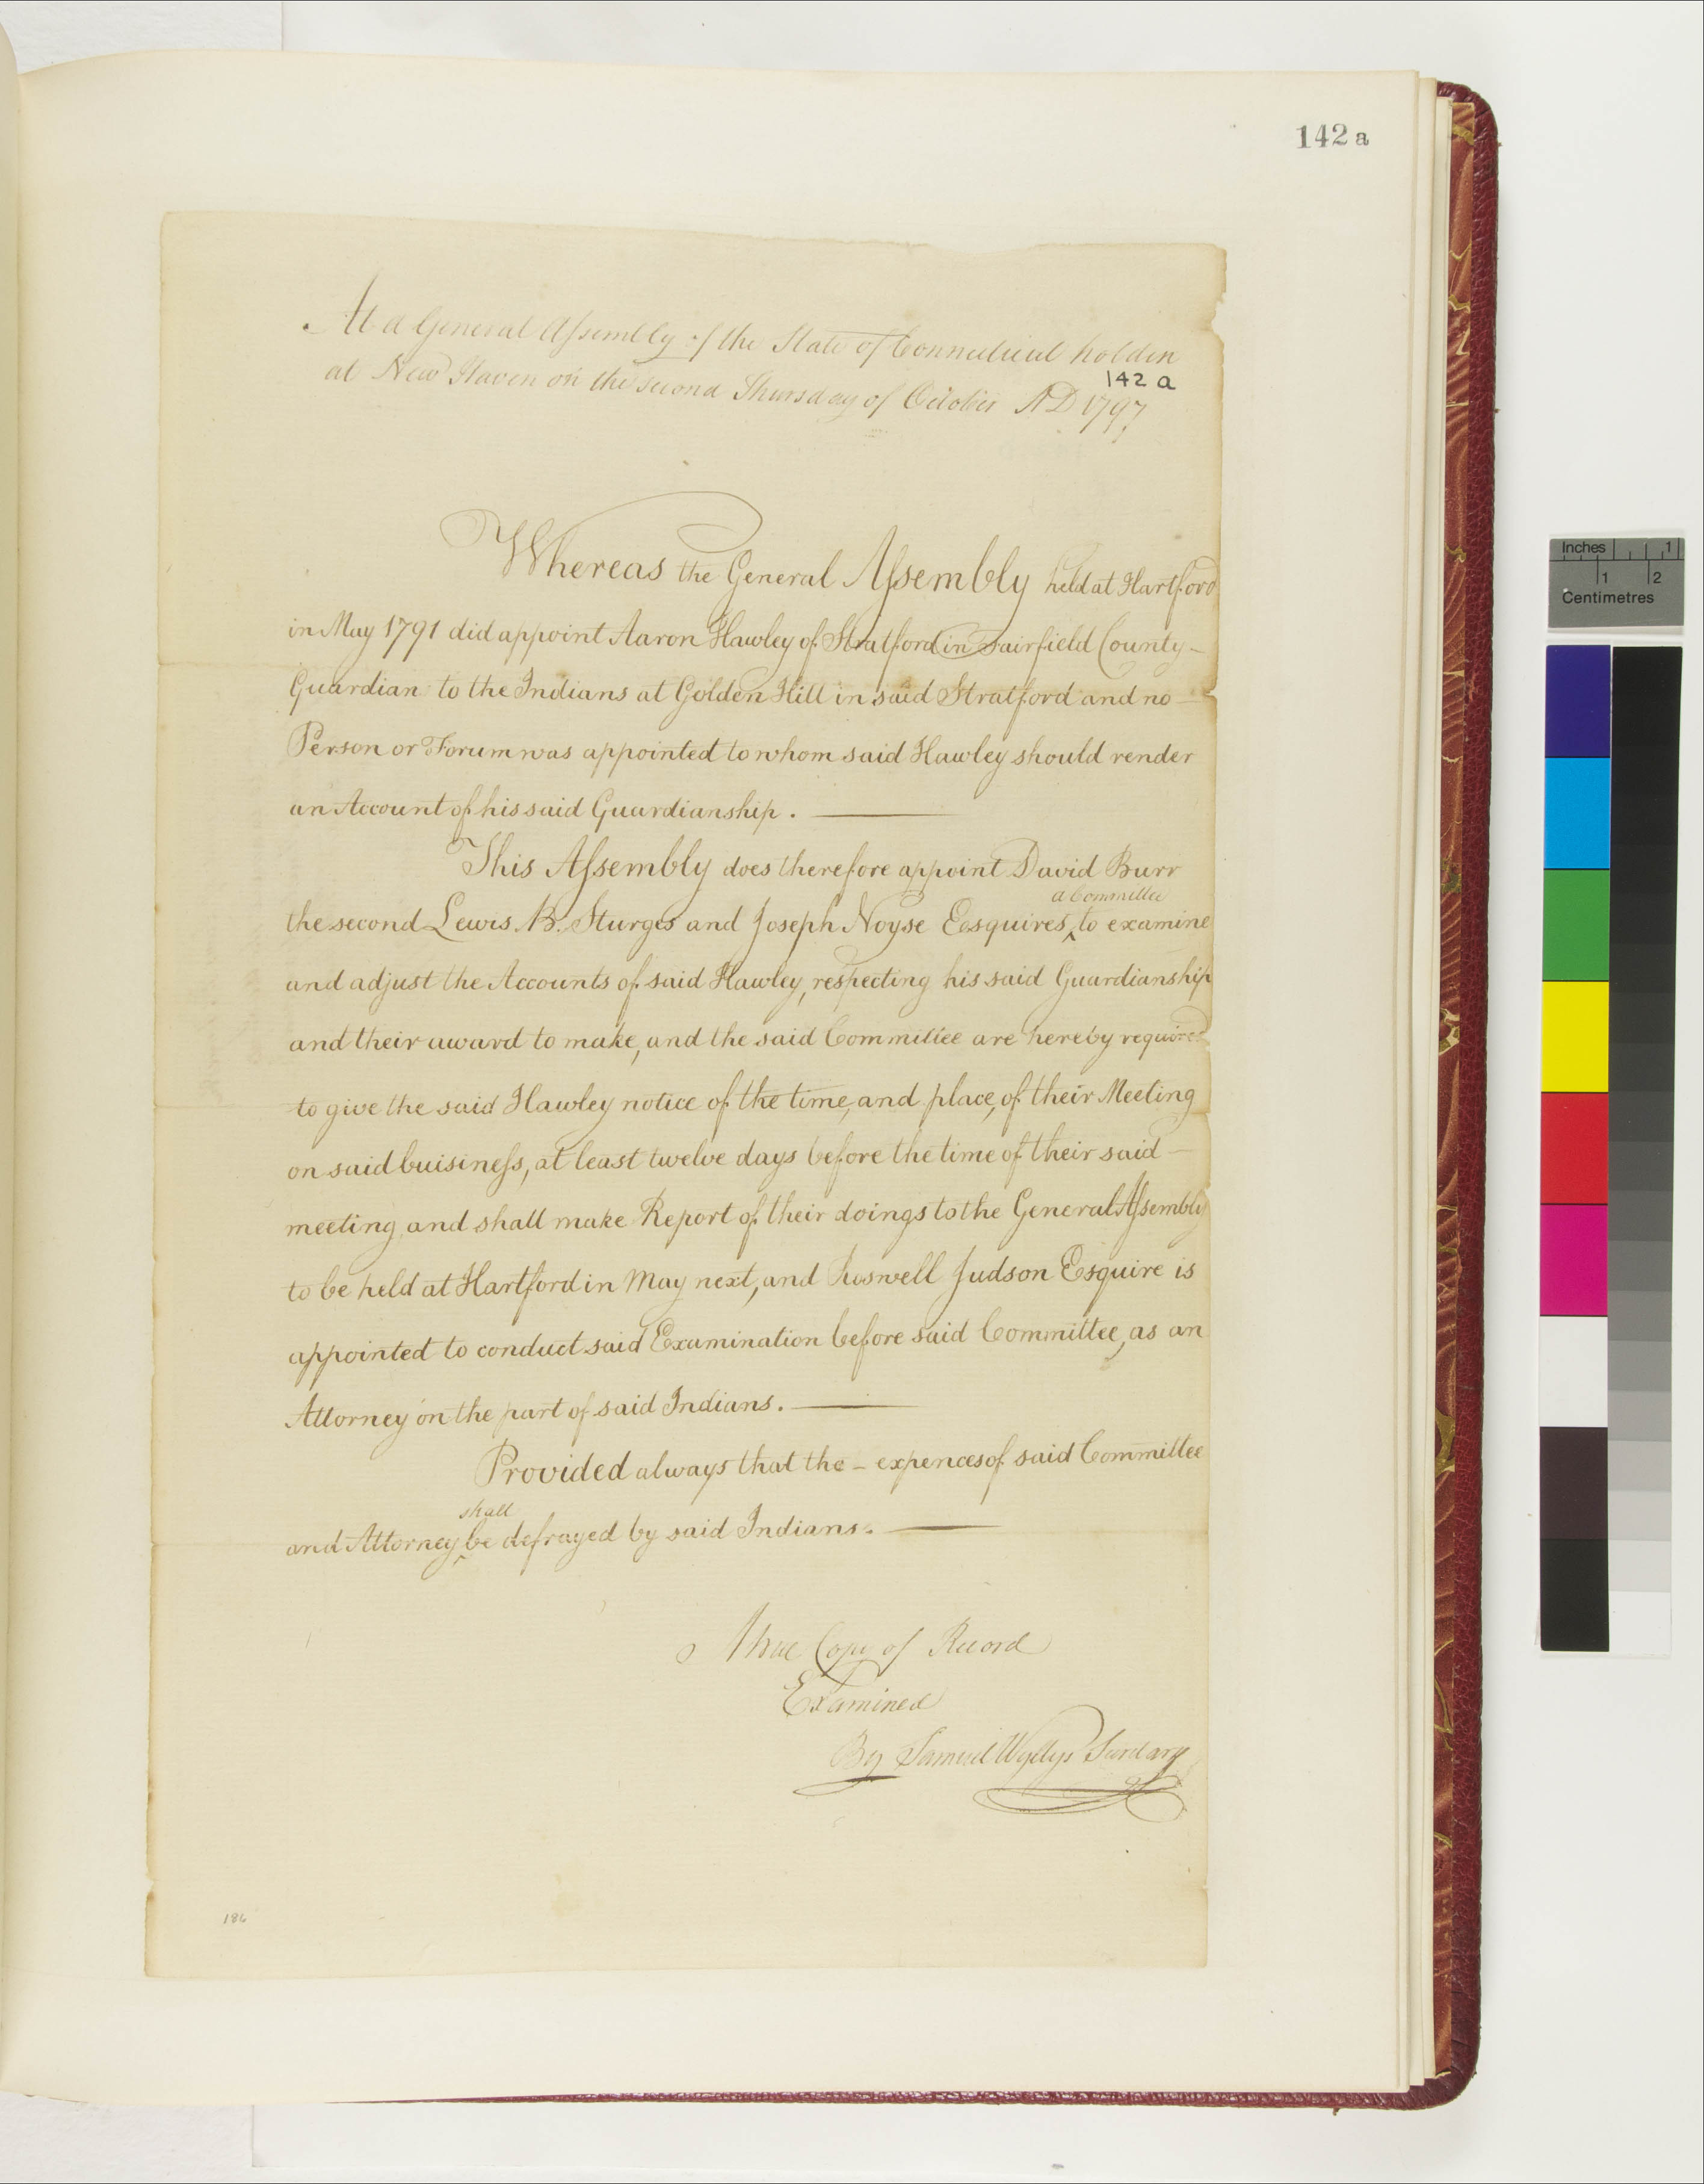 142 a
At a General Assembly of the State of Connecticut holden
at New Haven on the second Thursday of October AD 1797
142 a
Whereas the General Assembly held at Hartford
in May 1791 did appoint Aaron Hawley of Stratford in Fairfield County -
Guardian to the Indians at Golden Hill in said Stratford and no -
Person or Forum was appointed to whom said Hawley should render
an Account of his said Guardianship.
This Assembly does therefore appoint David Burr
a Committee
the second Lewis B. Sturges and Joseph Noyse Eesquires ‸ to examine
and adjust the Accounts of said Hawley, respecting his said Guardianship
and their award to make, and the said Committee are hereby required
to give the said Hawley notice of the time, and place, of their Meeting
on said buisiness, at least twelve days before the time of their said -
meeting, and shall make Report of their doings to the General Assembly
to be held at Hartford in May next, and Roswell Judson Esquire is
appointed to conduct said Examination before said Committee, as an
Attorney on the part of said Indians.
Provided always that the - expences of said Committee
shall
and Attorney ‸ be defrayed by said Indians.
A true Copy of Record
Examined
By Samuel Wyllys Secretary
186
Inches 1
1 2
Centimetres